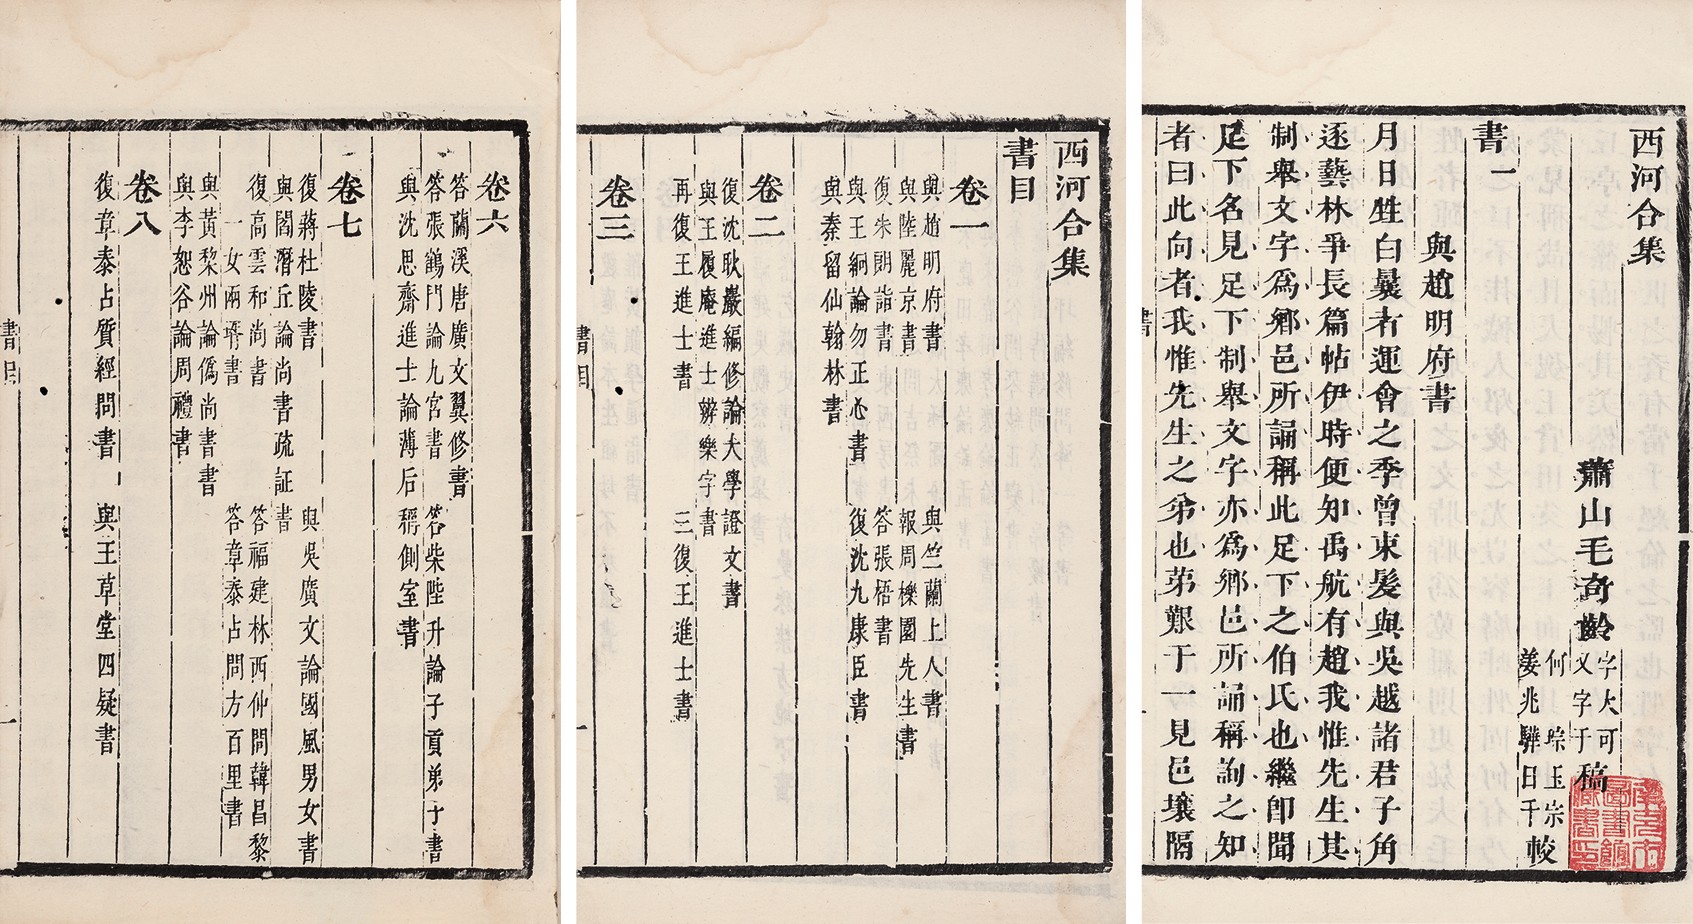 西河合集
蕭山毛奇齡字大可又字于稿
姜兆驊日千較
書一
與趙明府書
月日甡白曩者運會之季曾束髮與吳越諸君子角
逐藝林爭長篇帖伊時便知禹航有趙我惟先生其
制舉文字爲鄉邑所誦稱此足下之伯氏也繼卽聞
足下名見足下制舉文字亦爲鄉邑所誦稱詢之知
者曰此向者我惟先生之弟也苐艱于一見邑壤隔
書
西河合集
書目
卷一
與趙明府書 與竺蘭上人書
與陸麗京書 報周櫟園先生書
復朱朗詣書 答張梧書
與王絅論勿正心書 復沈九康臣書
與秦留仙翰林書
卷二
復沈耿巖編修論大學證文書
與王履庵進士辨樂字書
再復王進士書 三復王進士書
卷三
書目
一
卷六
答蘭溪唐廣文翼修書
答張鶴門論九宮書 答柴陛升論子貢弟子書
與沈思齋進士論薄后稱側室書
卷七
復蔣杜陵書 與吳廣文論國風男女書
與閻潛丘論尚書疏証書
復高雲和尚書 答福建林西仲問韓昌黎
一女兩壻書 答章泰占問方百里書
與黃棃州論僞尚書書
與李恕谷論周禮書
卷八
復章泰占質經問書 與王草堂四疑書
書目
一